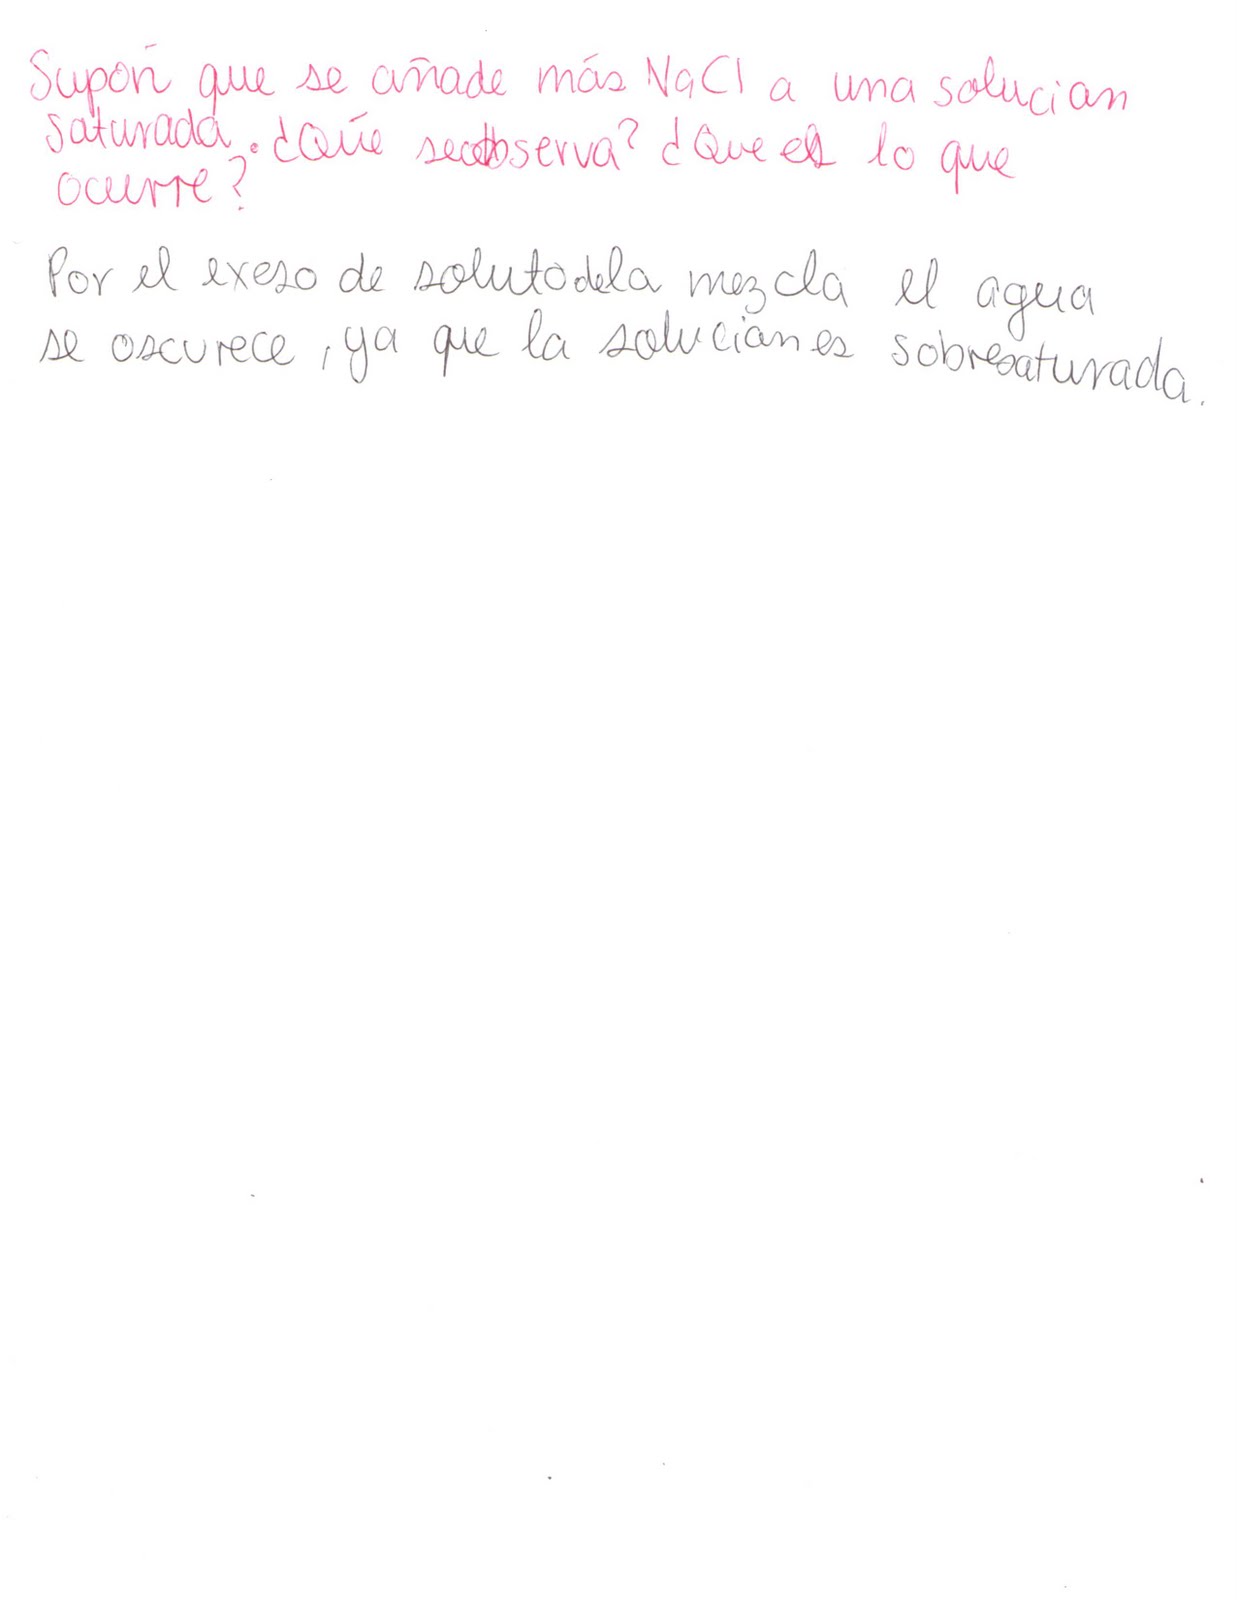 Supón que se añade más NaCl a una solucian
saturada. ¿Qúe se observa? ¿Que es lo que
ocurre?
Por el exeso de soluto de la mezcla el agua
se oscurece, ya que la solucian es sobresaturada.